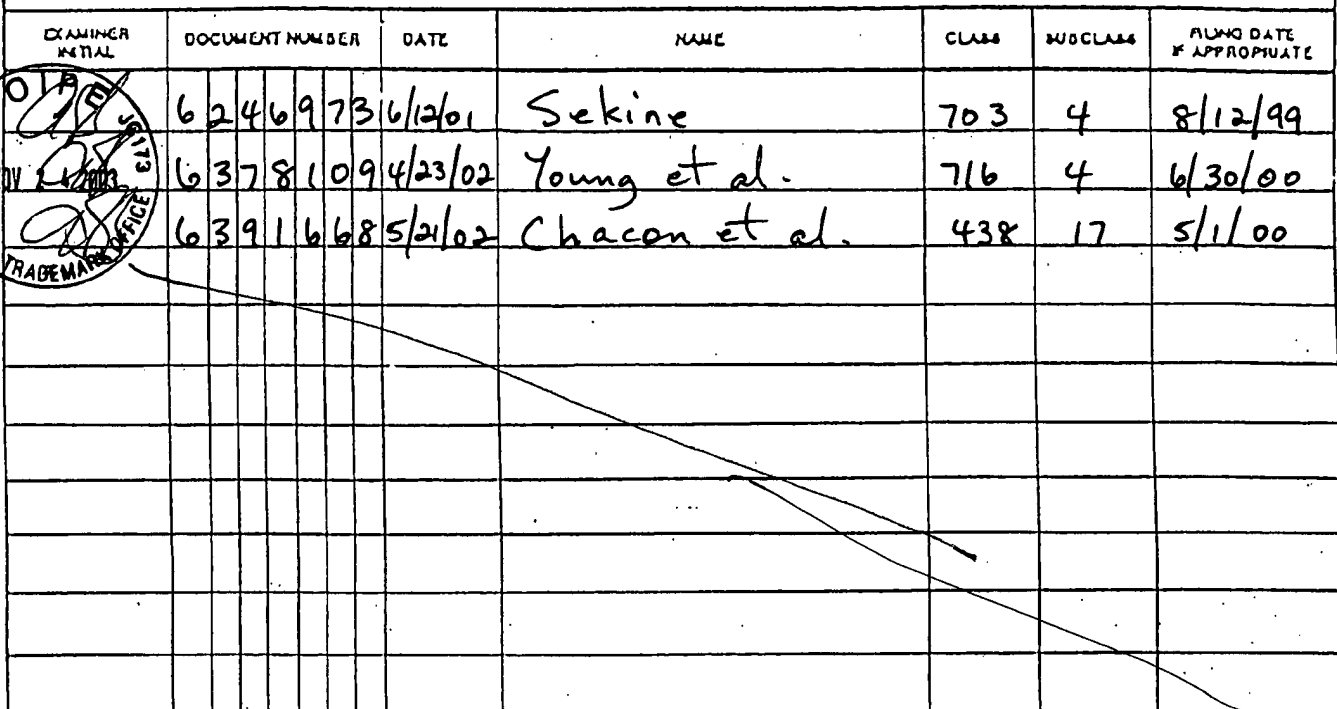 EXAMINER INITIAL DOCUMENT NUMBER DATE NAME CLASS SUBCLASS FILING DATE IF APPROPRIATE
6246973 6/12/01 Sekine 703 4 8/12/99
6378109 4/23/02 Young et al. 716 4 6/30/00
6391668 5/21/02 Chacon et al. 438 17 5/1/00
OIPE JC173
TRADEMARK OFFICE